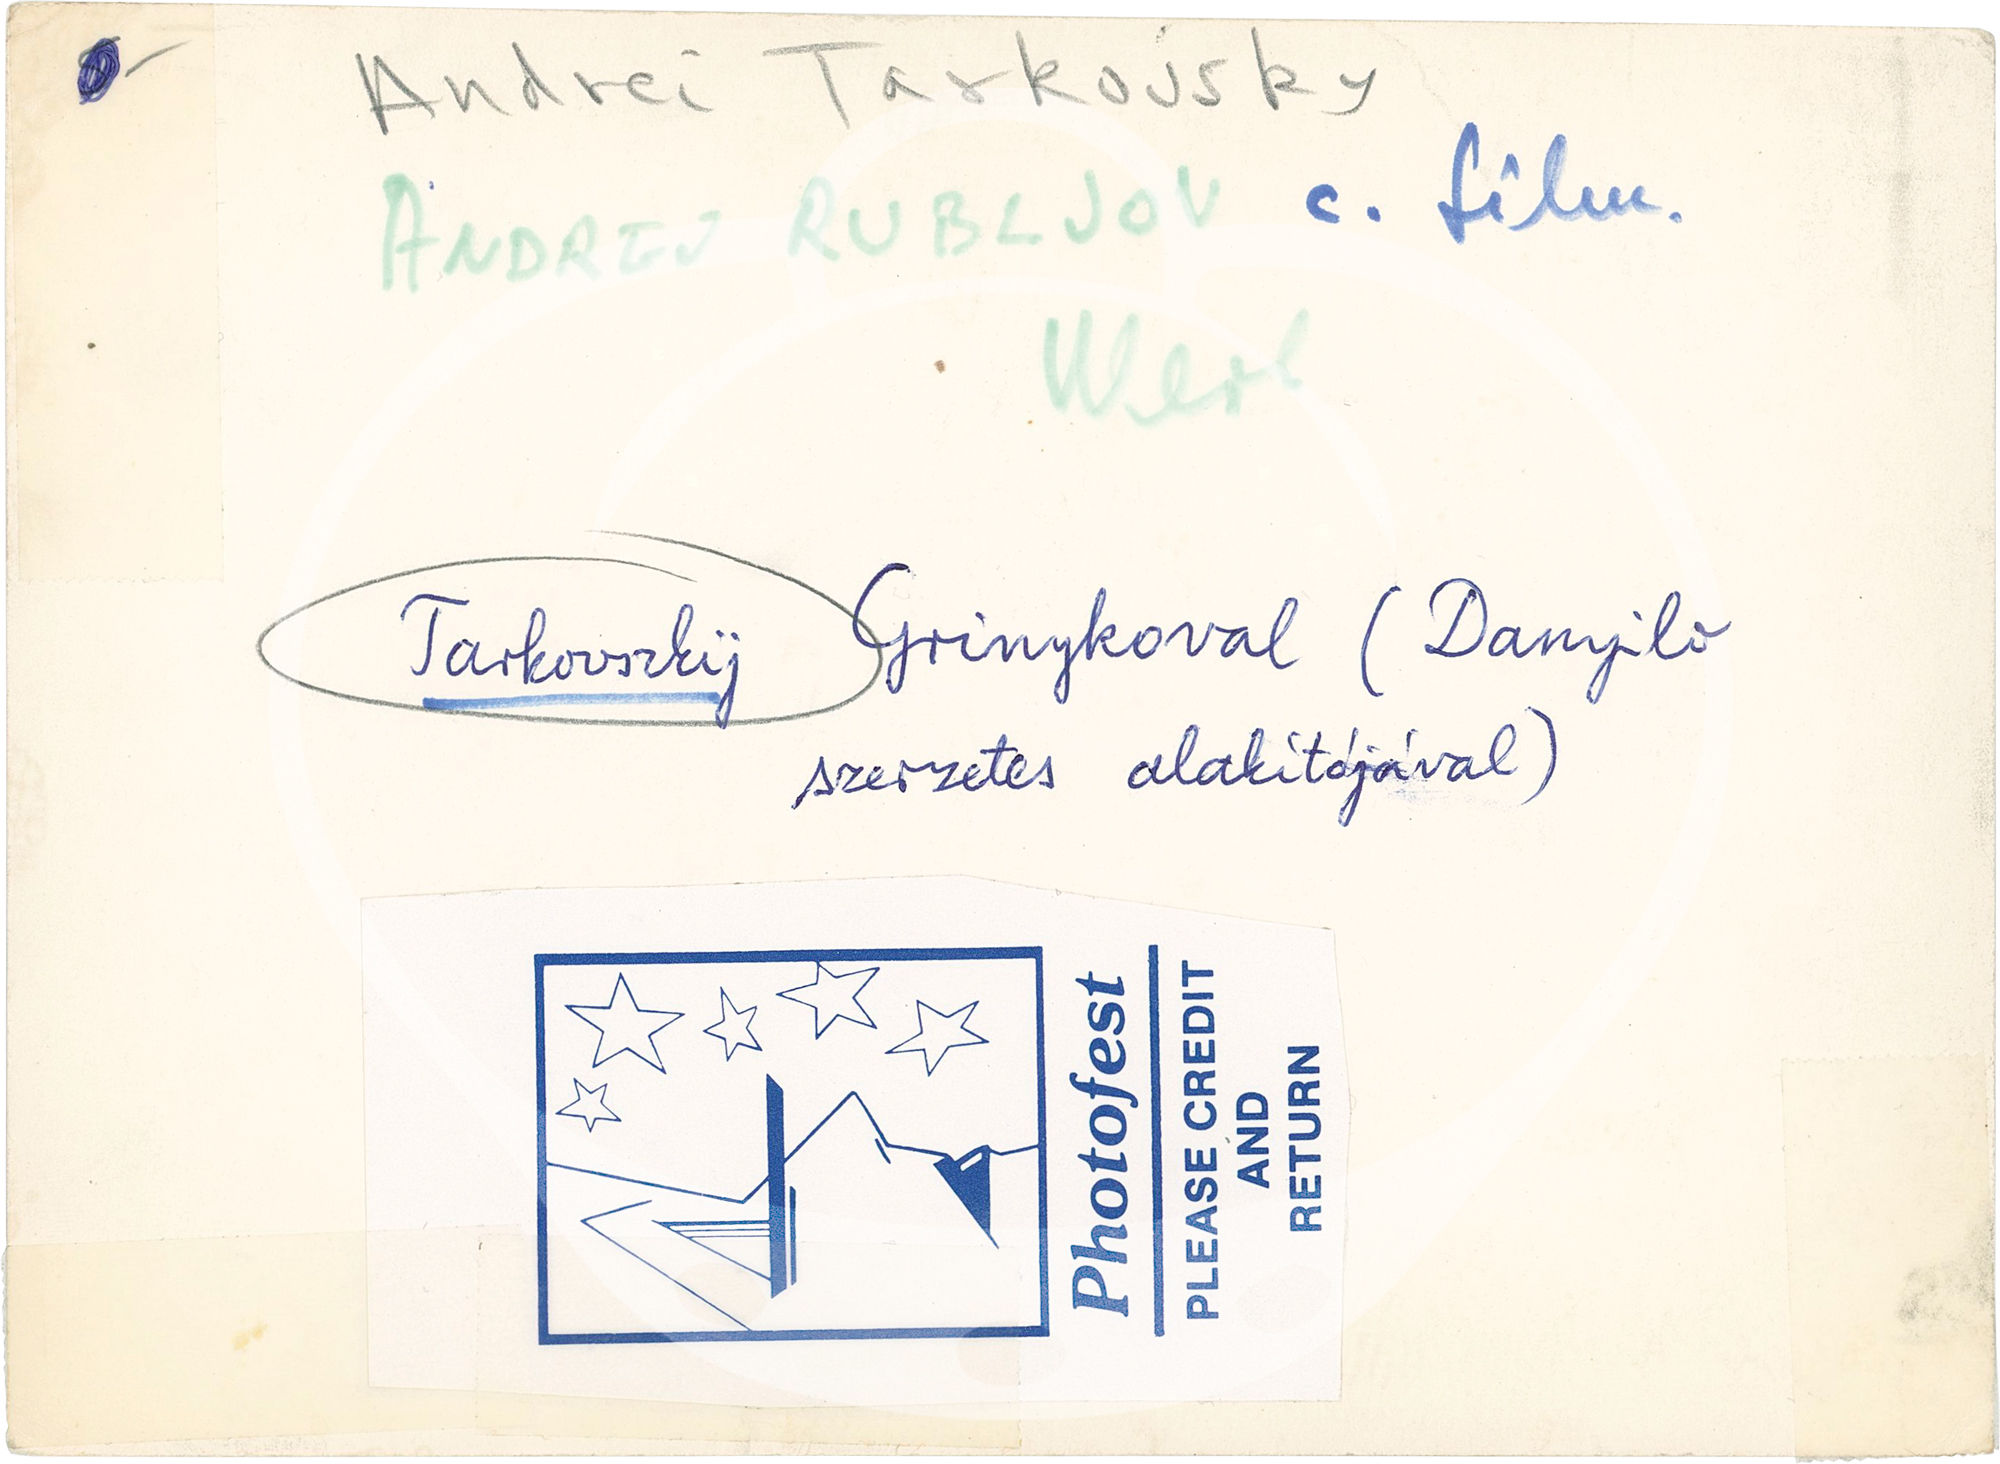 Andrei Tarkovsky
ANDREJ RUBLJOV c. film.
Werk
Tarkovszkij Grinykoval (Danyilo
szerzetes alakítójával)
Photofest
PLEASE CREDIT
AND
RETURN